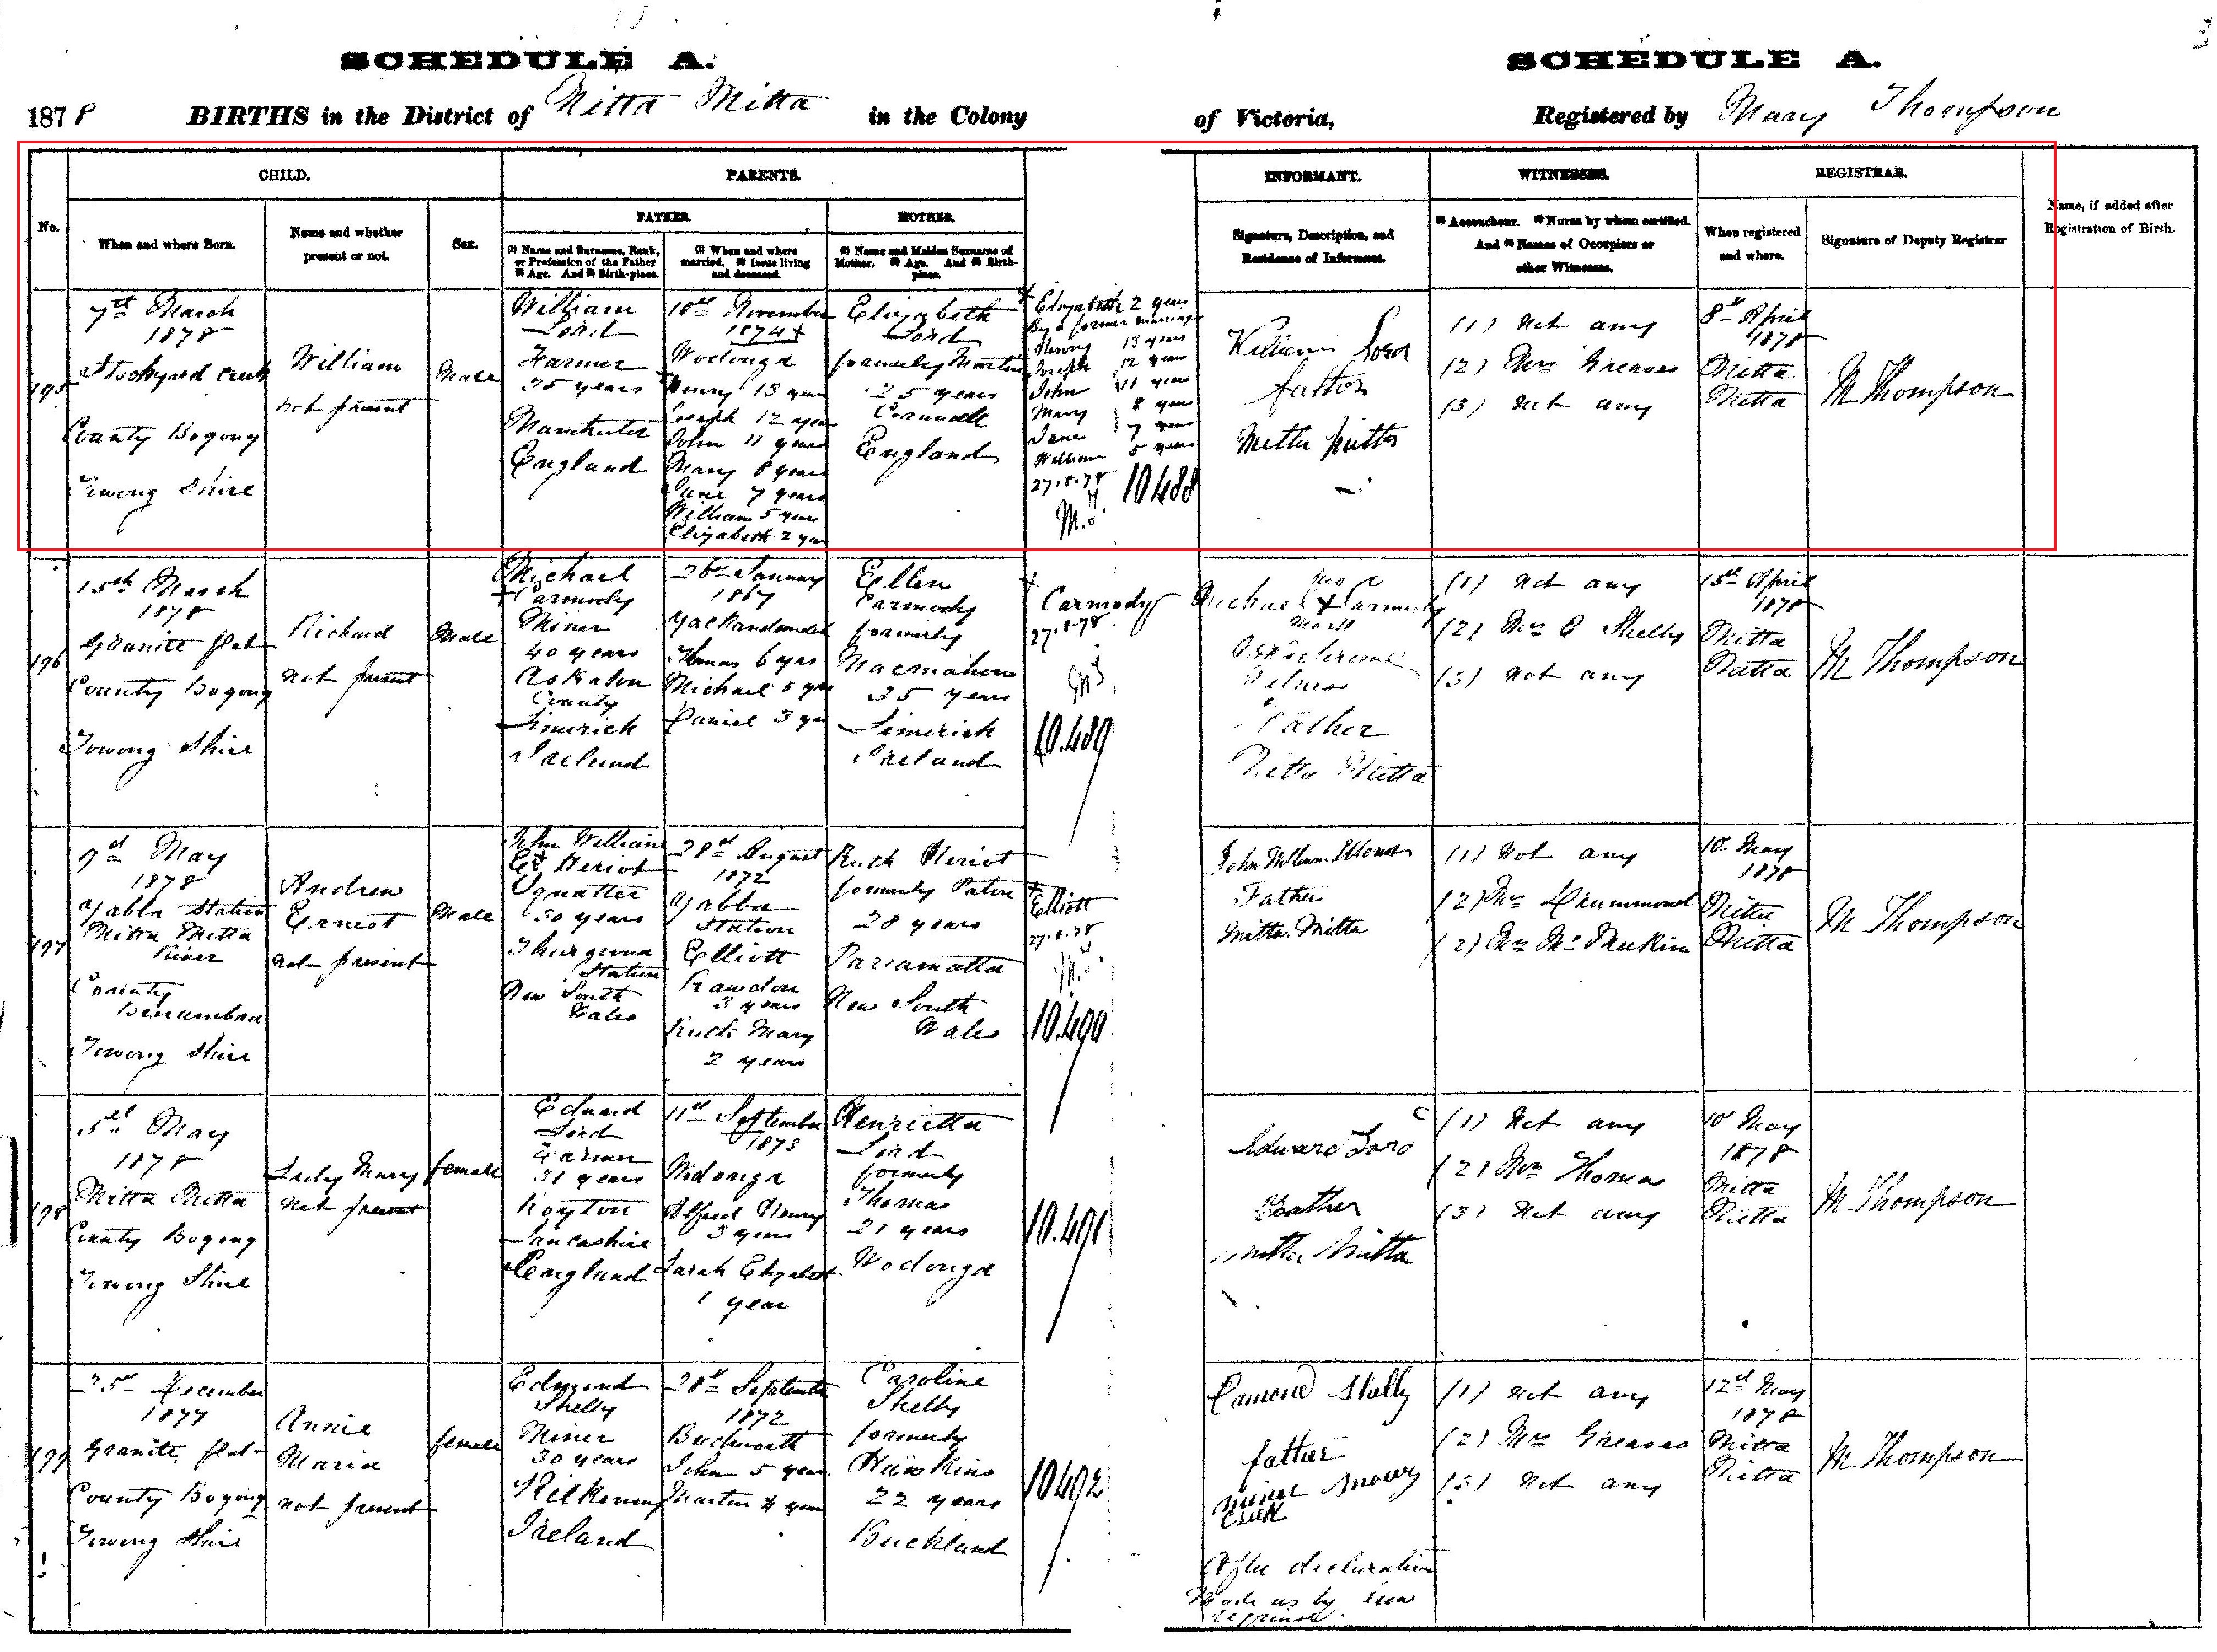 SCHEDULE A.
SCHEDULE A.
1878 BIRTHS in the District of Mitta Mitta in the Colony
of Victoria, Registered by Mary Thompson
No.
CHILD.
When and where Born.
Name and whether
present or not.
Sex.
PARENTS.
FATHER.
(1) Name and Surname, Rank,
or Profession of the Father
(2) Age. And (3) Birth-place.
(1) When and where
married. (2) Issue living
and deceased.
MOTHER.
(1) Name and Maiden Surname of
Mother. (2) Age. And (3) Birth-
place.
INFORMANT.
Signature, Description, and
Residence of Informant.
WITNESSES.
(1) Accoucheur. (2) Nurse by whom certified.
And (3) Names of Occupiers or
other Witnesses.
REGISTRAR.
When registered
and where.
Signature of Deputy Registrar
Name, if added after
Registration of Birth.
195
7th March
1878
Stockyard Creek
County Bogong
Towong Shire
William
not present
Male
William
Lord
Farmer
35 years
Manchester
England
10th November
1874 +
Wodonga
Henry 13 years
Joseph 12 years
John 11 years
Mary 8 years
Jane 7 years
William 5 years
Elizabeth 2 yrs
Elizabeth
Lord
formerly Martin
25 years
Cornwall
England
+ Elizabeth 2 years
By a former marriage
Henry 13 years
Joseph 12 years
John 11 years
Mary 8 years
Jane 7 years
William 5 years
27.8.78
10488
William Lord
father
Mitta Mitta
(1) Not any
(2) Mrs Greaves
(3) Not any
8th April
1878
Mitta
Mitta
M Thompson
196
15th March
1878
Granite flat
County Bogong
Towong Shire
Richard
not present
Male
Michael
+ Carmody
Miner
40 years
Askeaton
County
Limerick
Ireland
26th January
1867
Yackandandah
Thomas 6 yrs
Michael 5 yrs
Daniel 3 yrs
Ellen
Carmody
formerly
Macmahon
35 years
Limerick
Ireland
+
Carmody
27.8.78
10.489
his
Michael + Carmody
mark
Witness
Father
Mitta Mitta
(1) Not any
(2) Mrs E Shelly
(3) Not any
15th April
1878
Mitta
Mitta
M Thompson
197
9th May
1878
Yabba Station
Mitta Mitta
River
County
Benambra
Towong Shire
Andrew
Ernest
not present
Male
John William
Heriot
Squatter
30 years
Thurgoona
Station
New South
Wales
28th August
1872
Yabba
Station
Elliott
Rawdon
3 years
Ruth Mary
2 years
Ruth Heriot
formerly Paton
28 years
Parramatta
New South
Wales
+
Elliott
27.8.78
10.490
John William Heriot
Father
Mitta Mitta
(1) Not any
(2) Mrs Drummond
(2) Mrs McMeekin
10 May
1878
Mitta
Mitta
M Thompson
198
5th May
1878
Mitta Mitta
County Bogong
Towong Shire
Lucy Mary
not present
female
Edward
Lord
Farmer
31 years
Royton
Lancashire
England
11th September
1873
Wodonga
Alfred Henry
3 years
Sarah Elizabeth
1 year
Henrietta
Lord
formerly
Thomas
21 years
Wodonga
10.491
Edward Lord
Father
Mitta Mitta
(1) Not any
(2) Mrs Thomas
(3) Not any
10 May
1878
Mitta
Mitta
M Thompson
199
25th December
1877
Granite flat
County Bogong
Towong Shire
Annie
Maria
not present
female
Edmond
Shelly
Miner
30 years
Kilkenny
Ireland
28th September
1872
Beechworth
John 5 years
Martin 4 years
Caroline
Shelly
formerly
Hawkins
22 years
Buckland
10492
Edmond Shelly
father
miner Snowy
Creek
After declaration
Made as by law
required.
(1) Not any
(2) Mrs Greaves
(3) Not any
12th May
1878
Mitta
Mitta
M Thompson